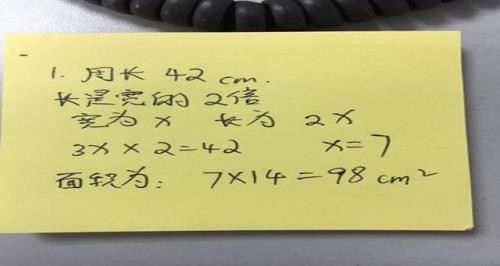 1. 周长 42 cm.
长是宽的 2倍
宽为 x 长为 2x
3x × 2 = 42 x = 7
面积为: 7×14 = 98 cm²